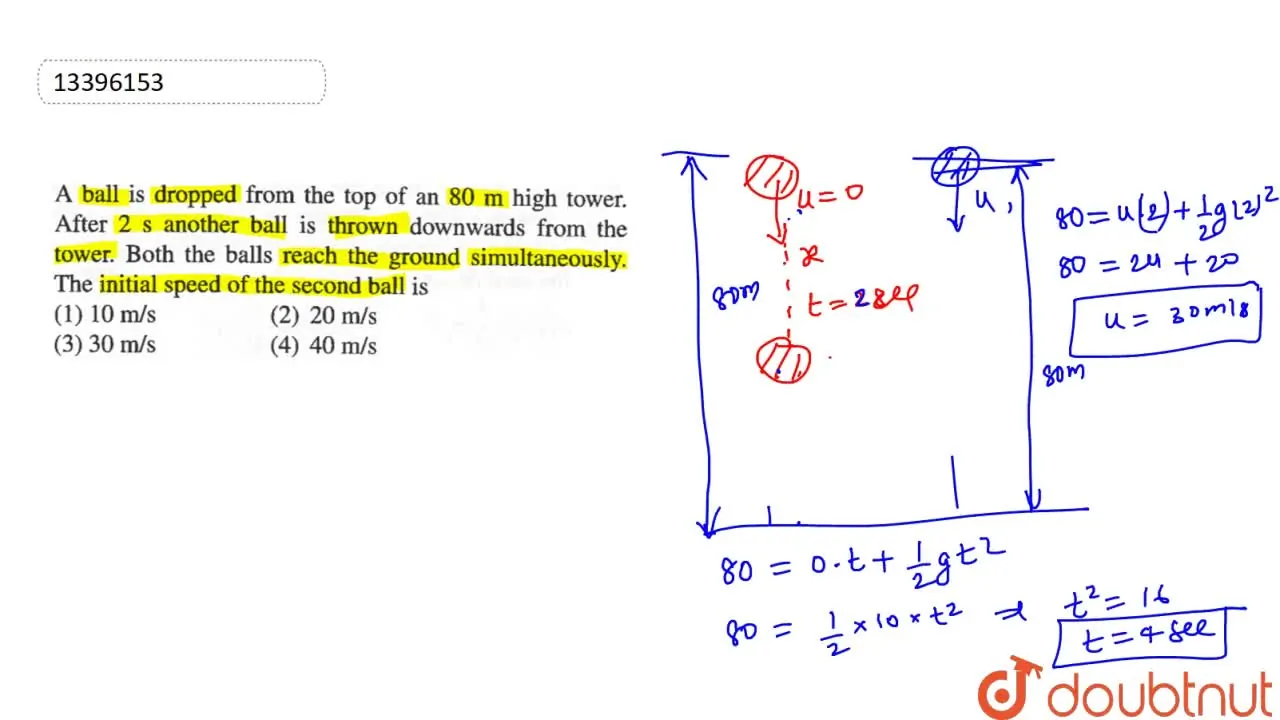 13396153
A ball is dropped from the top of an 80 m high tower.
After 2 s another ball is thrown downwards from the
tower. Both the balls reach the ground simultaneously.
The initial speed of the second ball is
(1) 10 m/s (2) 20 m/s
(3) 30 m/s (4) 40 m/s
80m
u=0
x
t=2sec
u,
80m
80=u(2)+1/2g(2)²
80=2u+20
u= 30m/s
80 = 0.t+1/2gt²
80 = 1/2×10×t² ⇒ t²=16
t=4sec
doubtnut